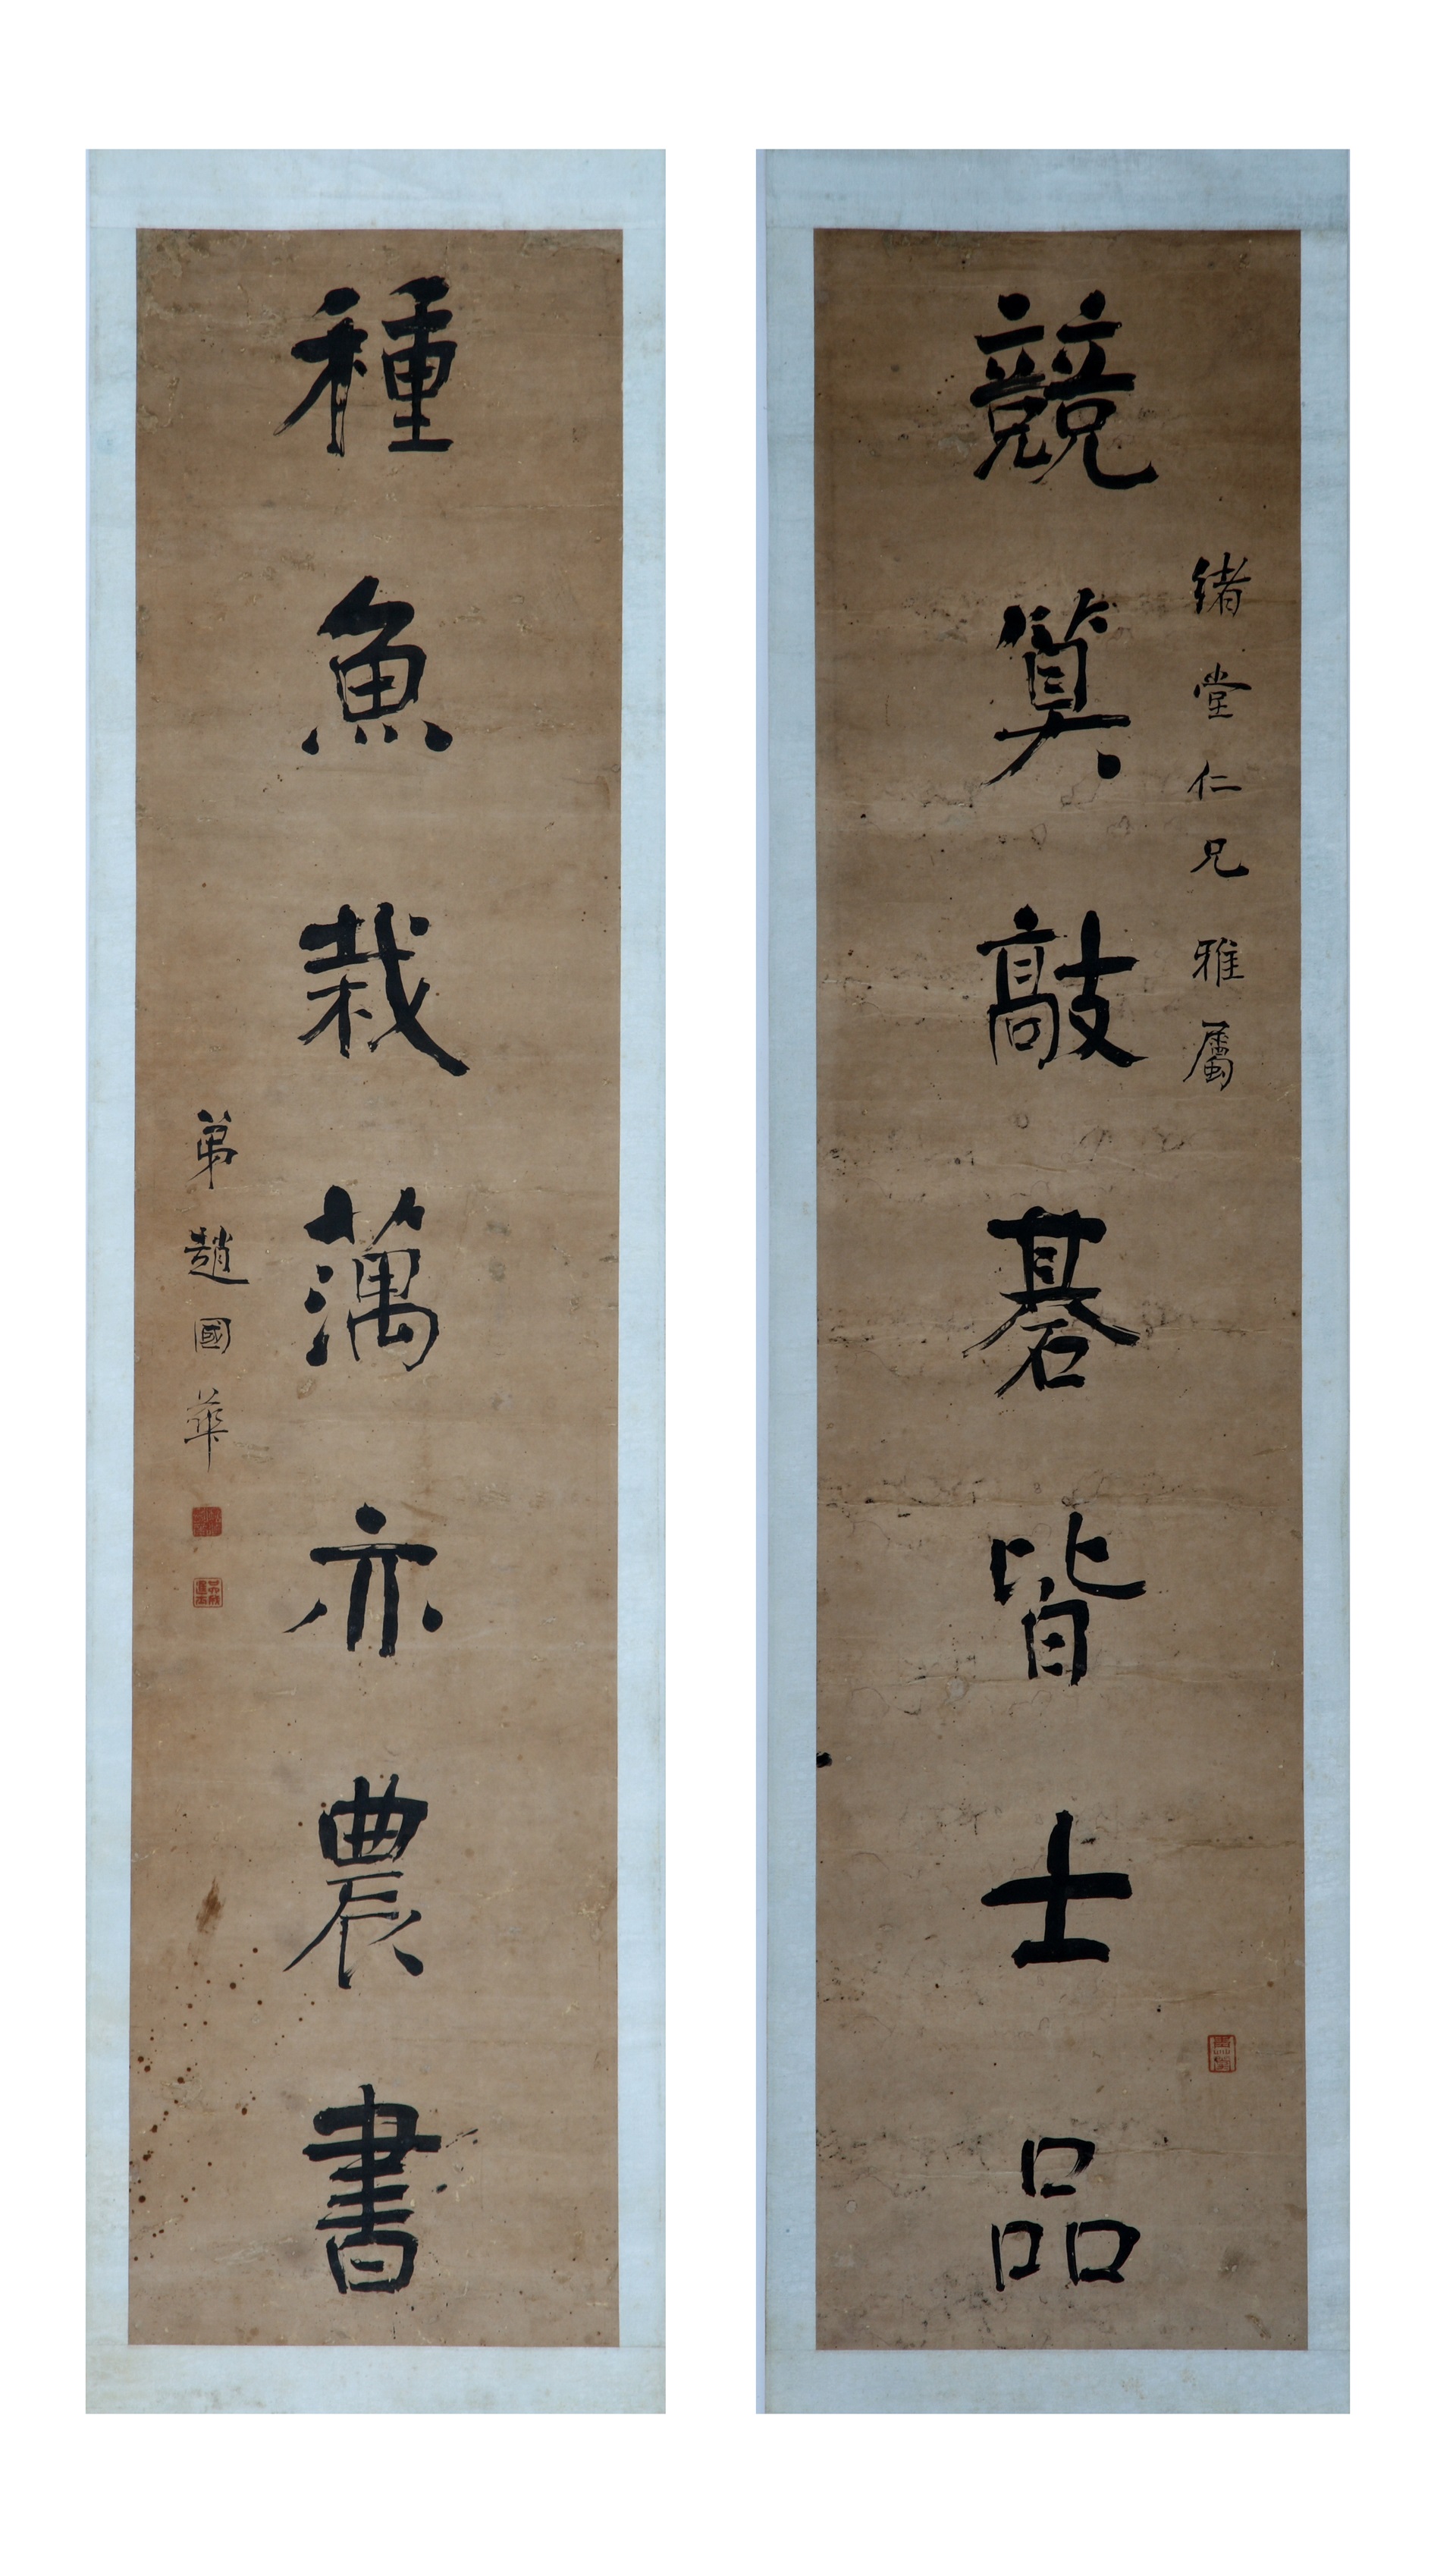 競算敲碁皆士品
緒堂仁兄雅屬
種魚栽蕅亦農書
弟趙國華